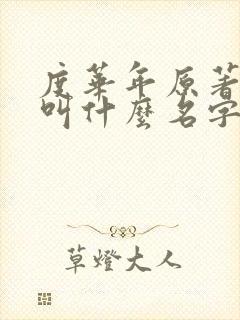 度華年原著
叫什麼名字
草燈大人